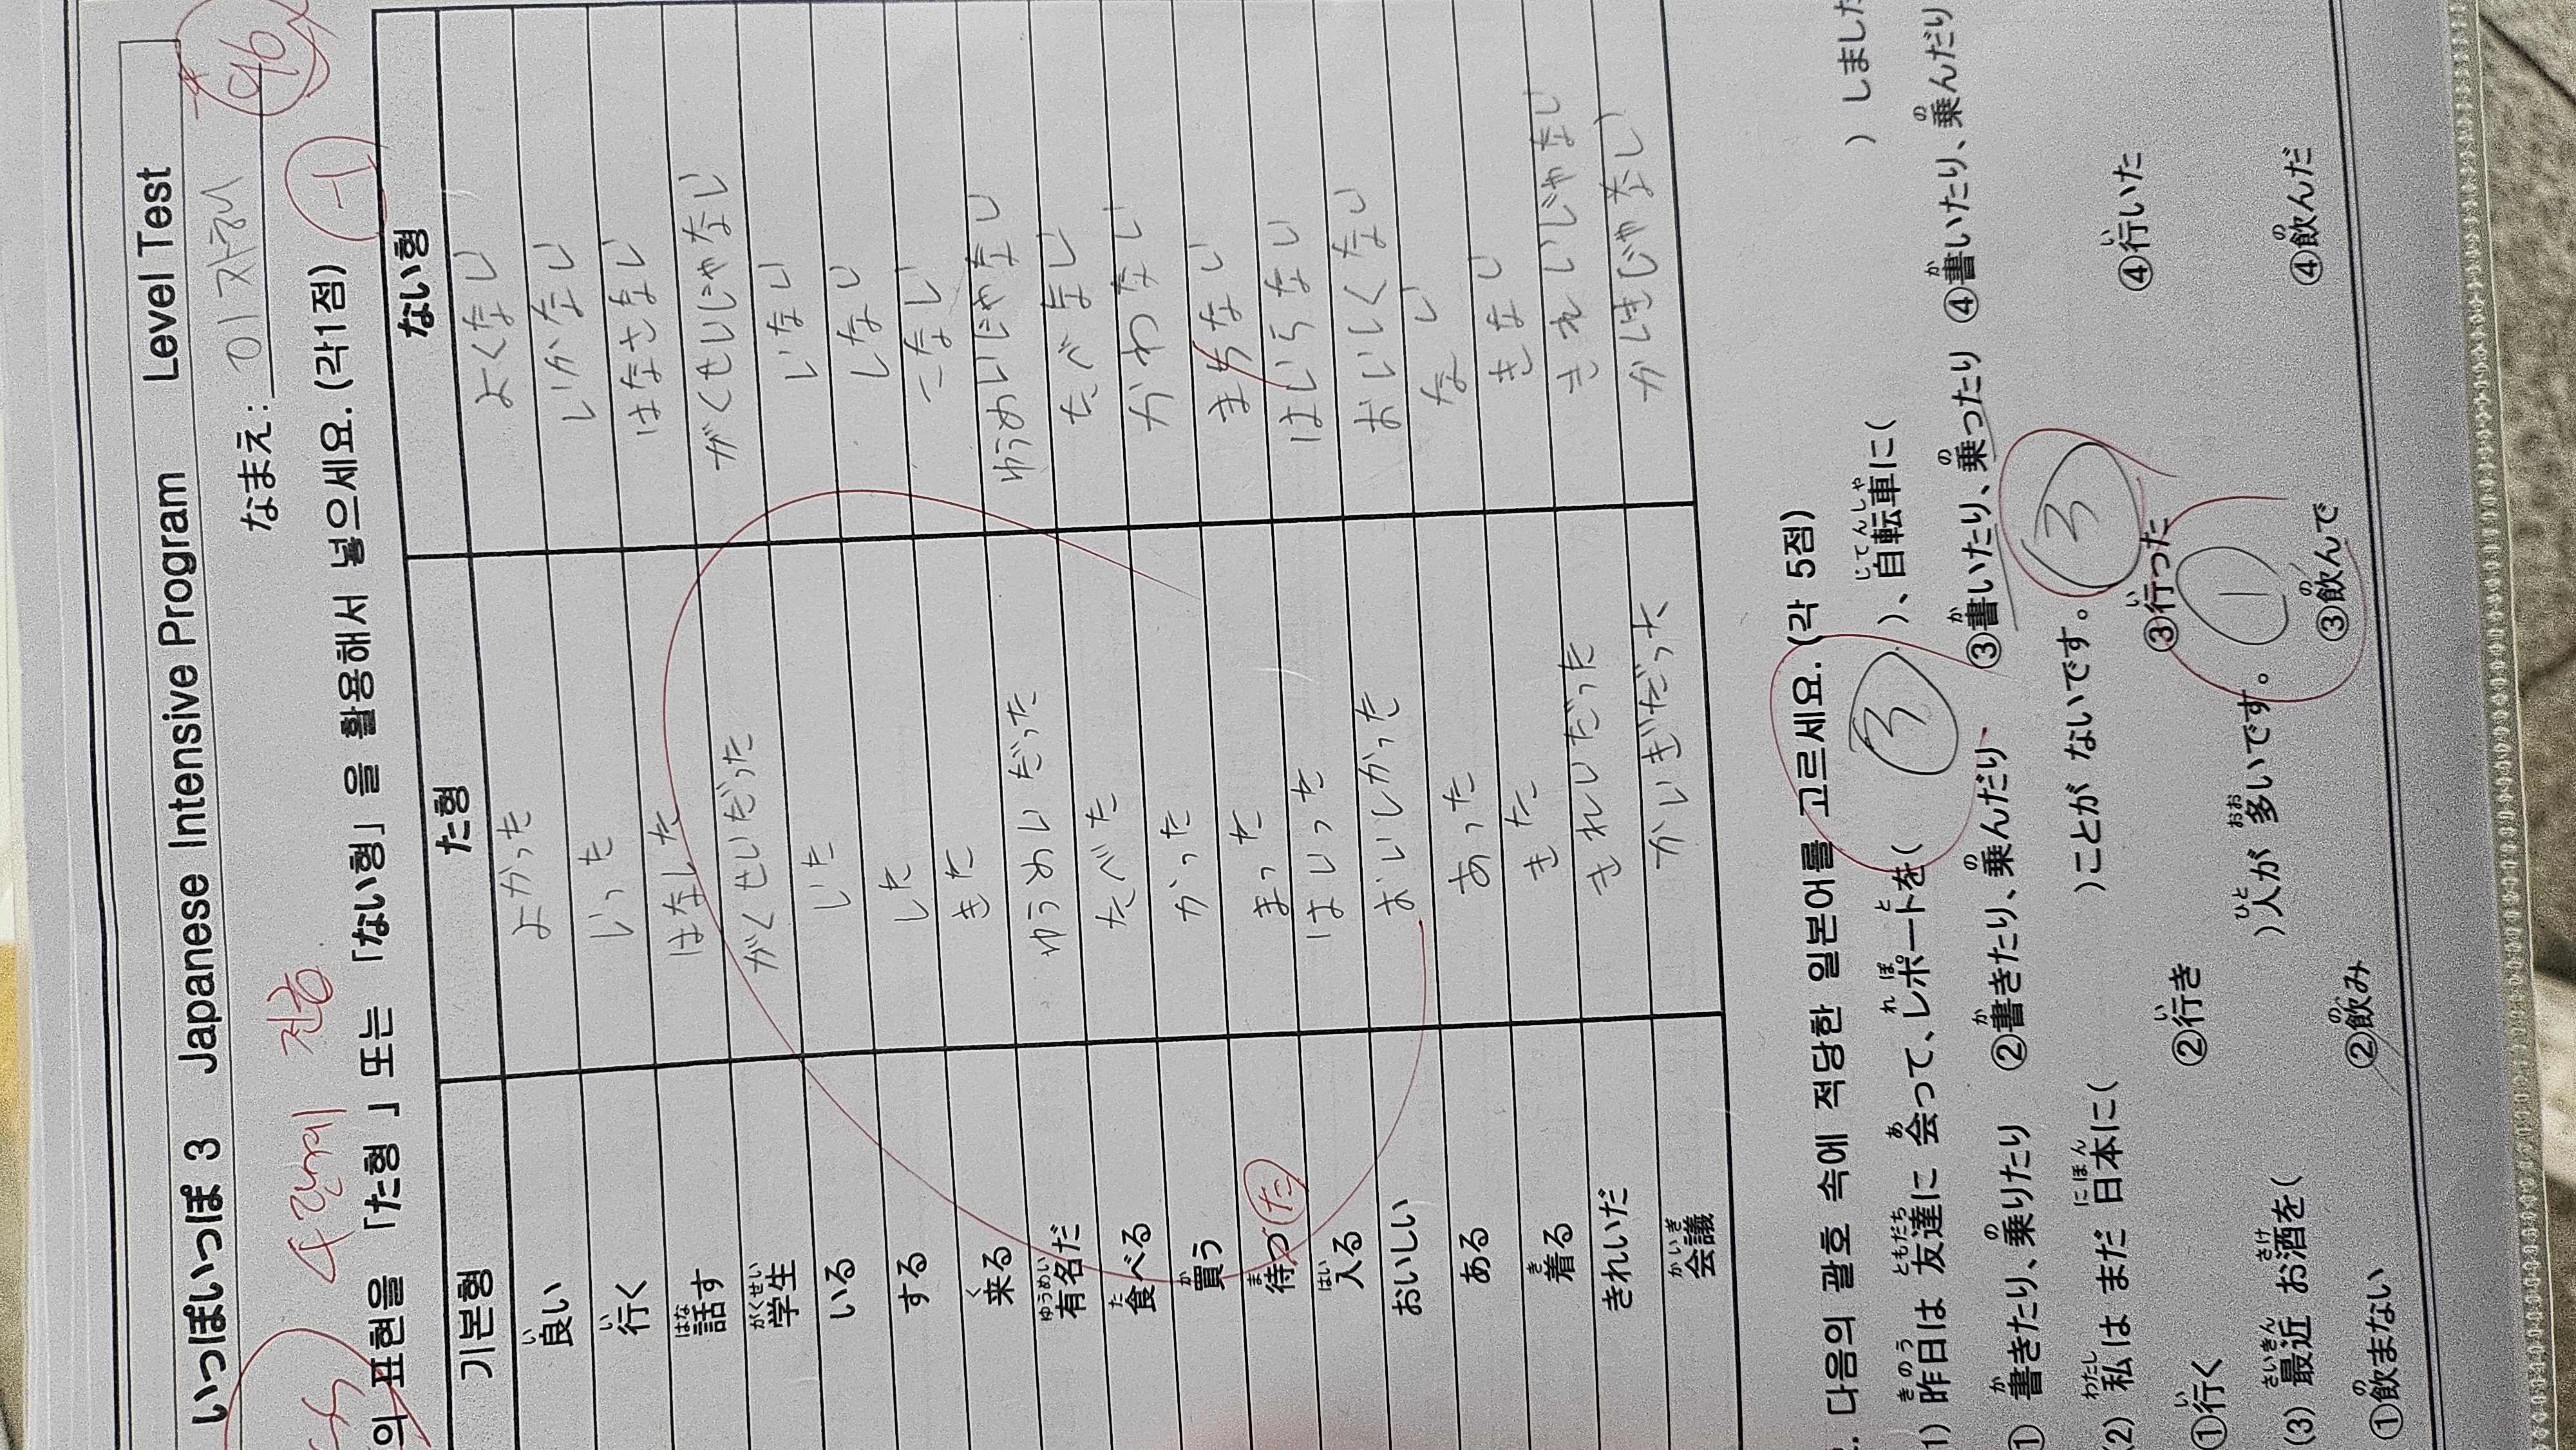 いっぽいっぽ 3 Japanese Intensive Program Level Test
96
なまえ: 이자해
4단계 진중
의 표현을 「た형 」 또는 「ない형」 을 활용해서 넣으세요. (각1점) -1
기본형 た형 ない형
良い(い) よかった よくない
行く(い) いった いかない
話す(はな) はなした はなさない
学生(がくせい) がくせいだった がくせいじゃない
いる いた いない
する した しない
来る(く) きた こない
有名だ(ゆうめい) ゆうめいだった ゆうめいじゃない
食べる(た) たべた たべない
買う(か) かった かわない
待つ(ま) た まった まちない
入る(はい) はいった はいらない
おいしい おいしかった おいしくない
ある あった ない
着る(き) きた きない
きれいだ きれいだった きれいじゃない
会議(かいぎ) かいぎだった かいぎじゃない
. 다음의 괄호 속에 적당한 일본어를 고르세요. (각 5점)
1) 昨日は(きのう) 友達に(ともだち) 会って(あ)、レポートを(れぽと)( 3 )、自転車に(じてんしゃ)( )しました
① 書きたり(か)、乗りたり(の) ②書きたり(か)、乗んだり(の) ③書いたり(か)、乗ったり(の) ④書いたり(か)、乗んだり(の)
(2) 私は(わたし) まだ 日本に(にほん)( )ことが ないです。 3
①行く(い) ②行き(い) ③行った(い) ④行いた(い)
(3) 最近(さいきん) お酒を(さけ)( )人が(ひと) 多いです(おお)。 1
①飲まない(の) ②飲み(の) ③飲んで(の) ④飲んだ(の)